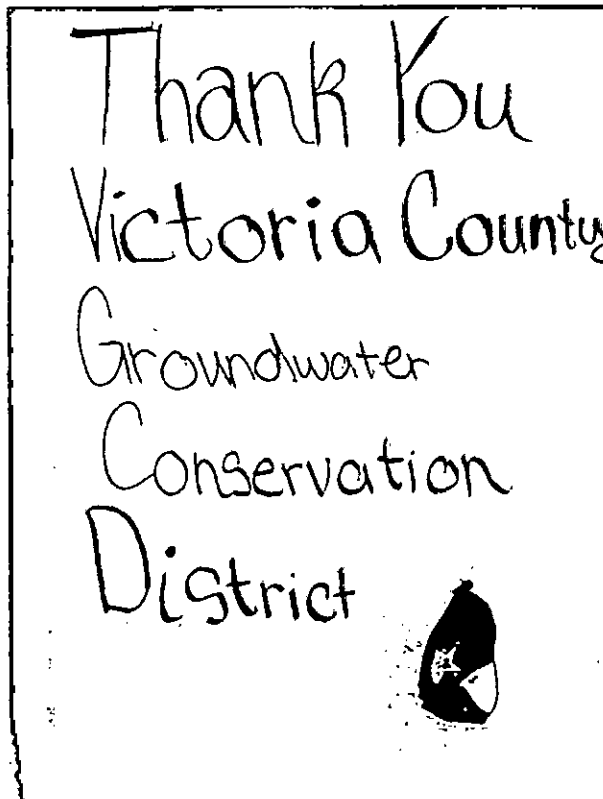 Thank You
Victoria County
Groundwater
Conservation
District